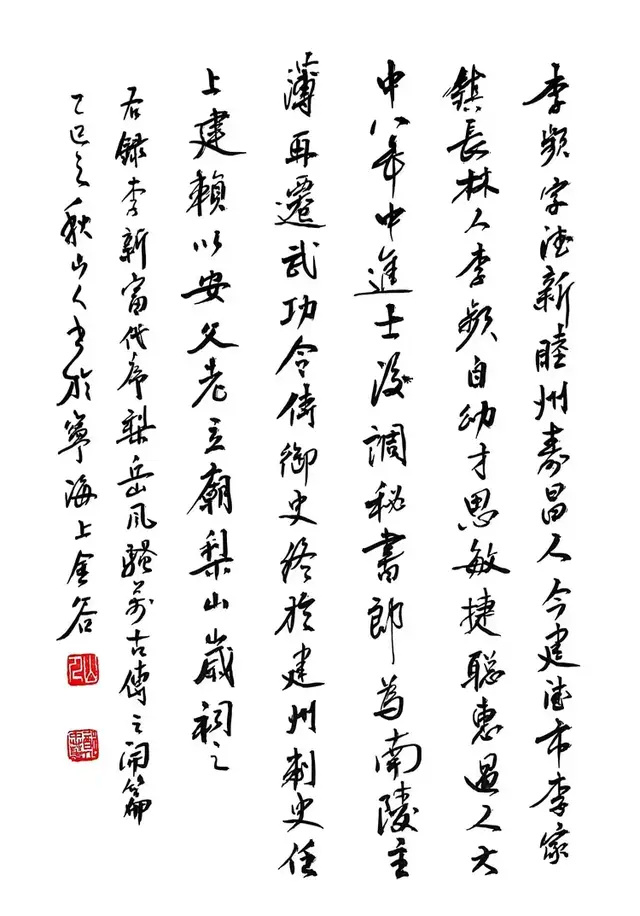 李频字德新睦州寿昌人今建德市李家
镇長林人李频自幼才思敏捷聪惠過人大
中八年中進士後調秘書郎為南陵主
薄再遷武功令侍御史終於建州刺史任
上建賴以安父老立廟梨山歲祠之
右録李新富代序梨岳风騷萬古傳之開篇
乙巳之秋山人書於寧海上金谷